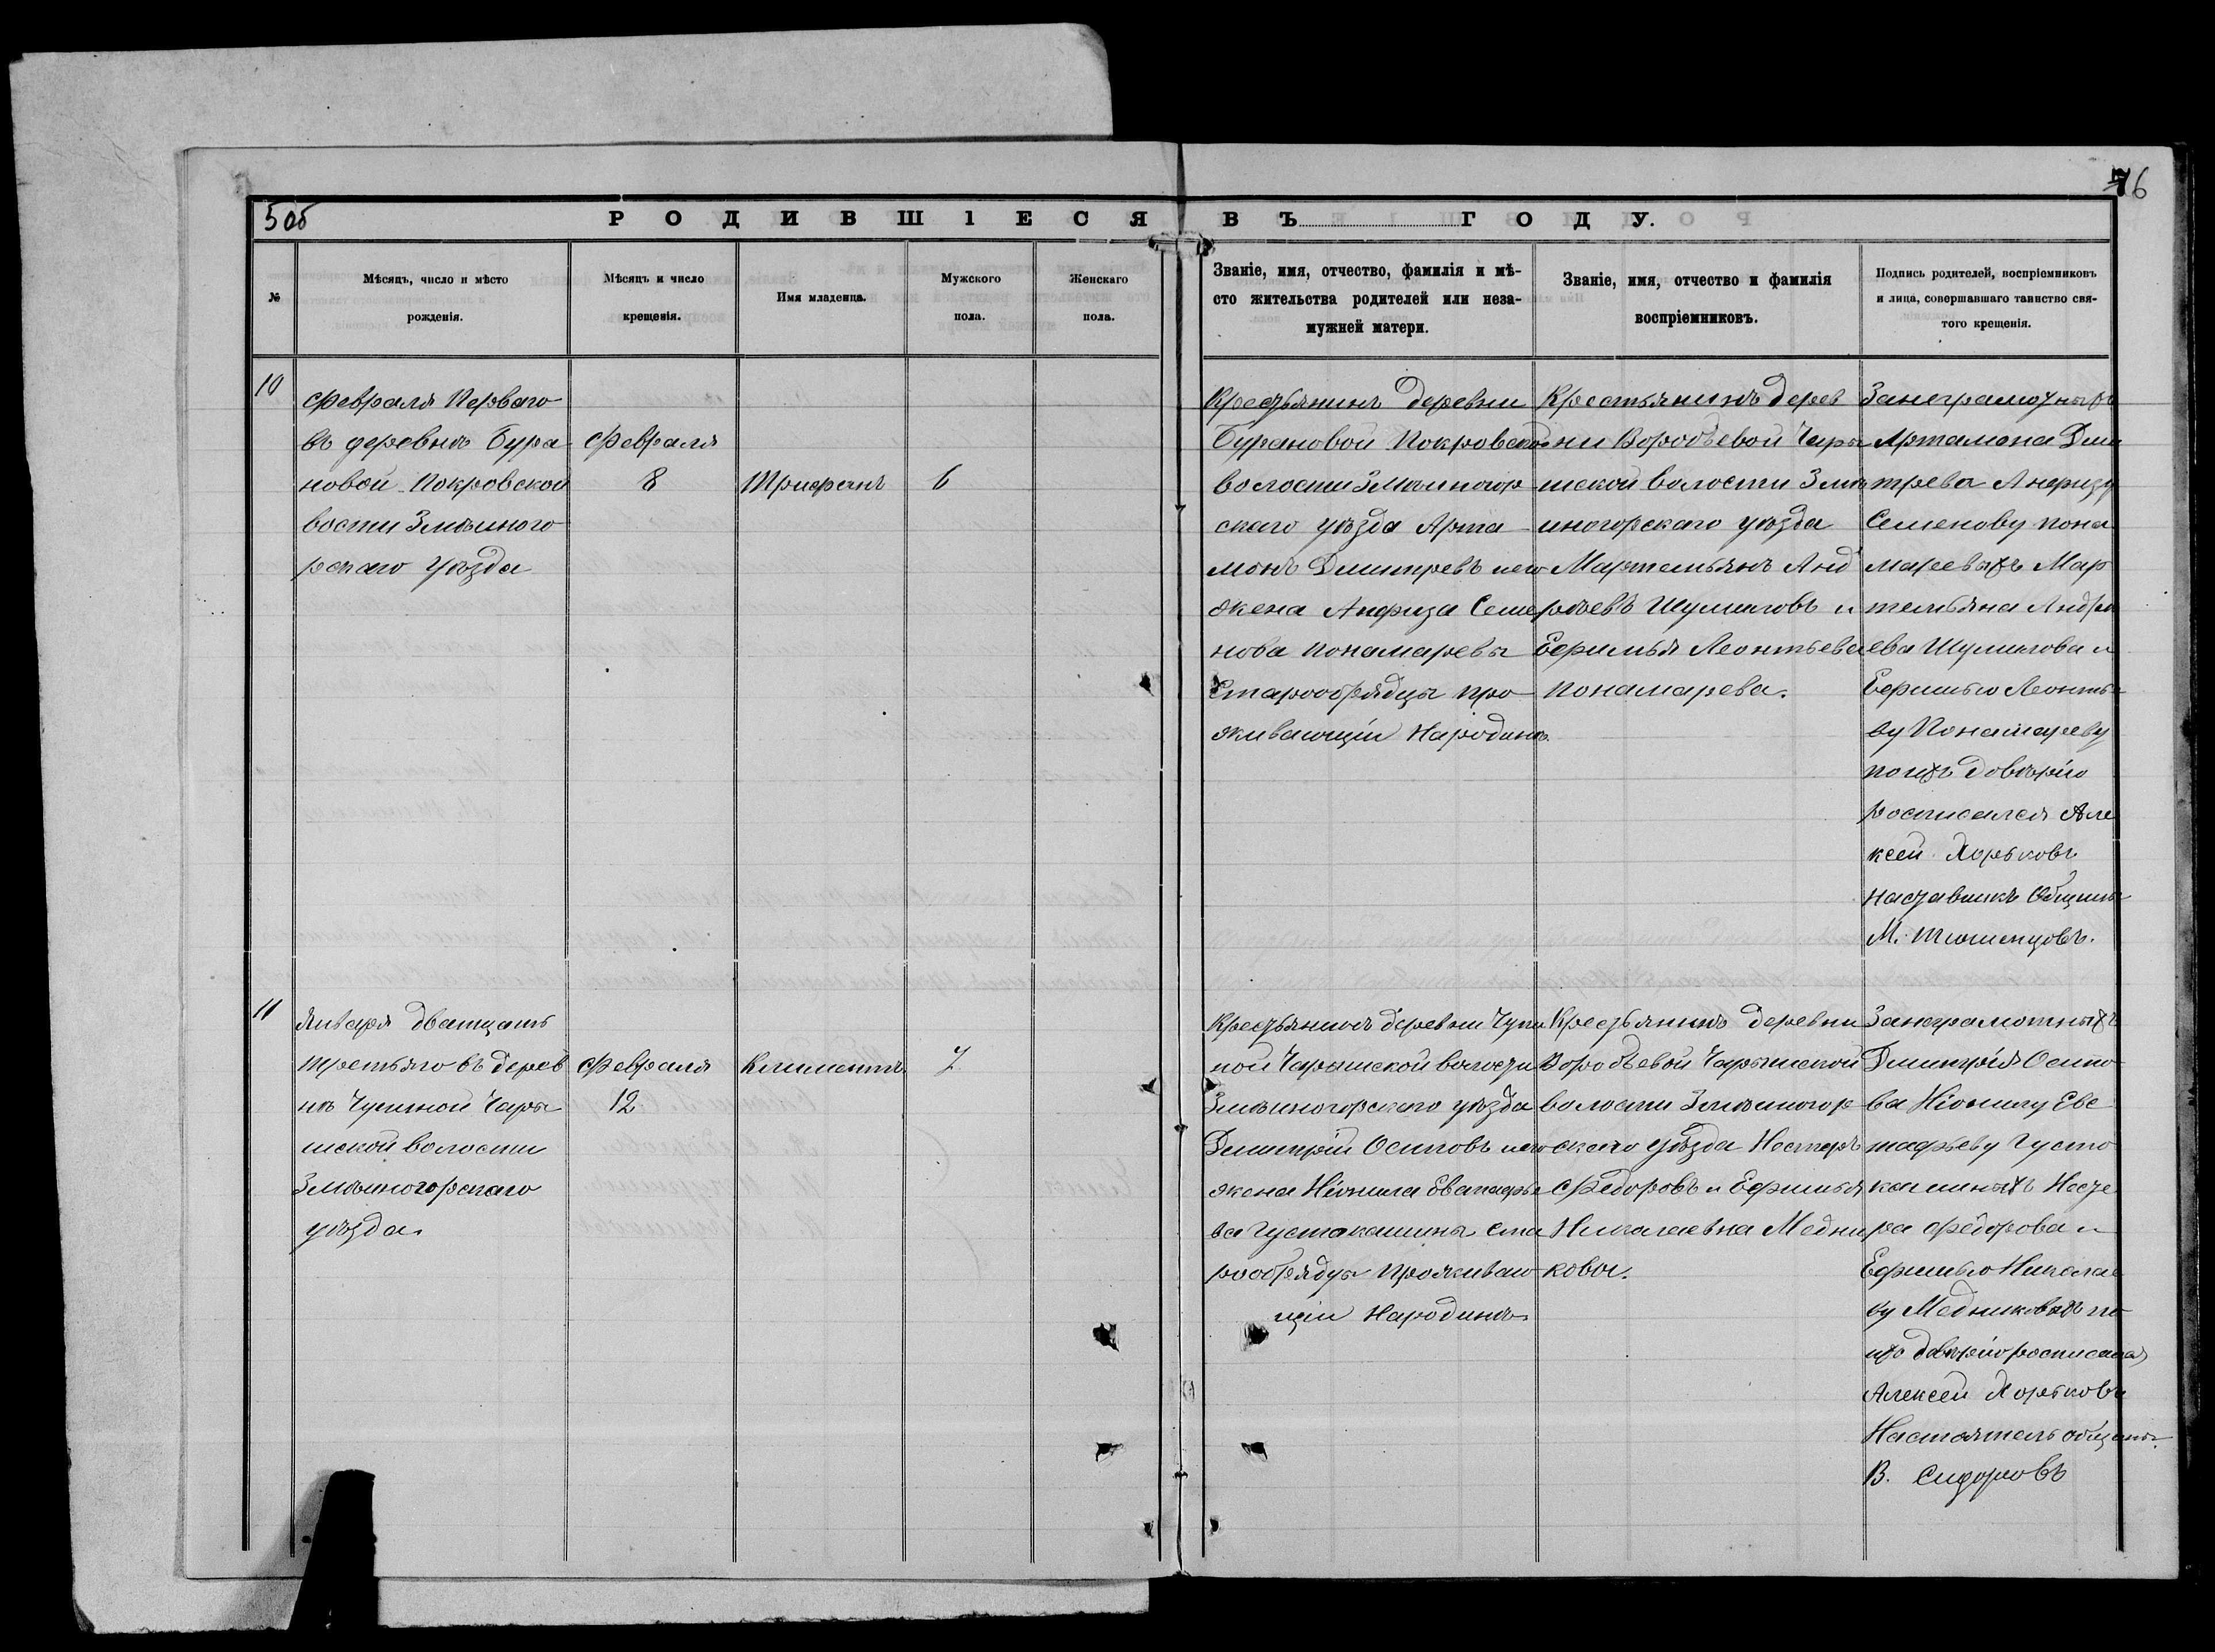 5 об
76
РОДИВШІЕСЯ ВЪ ГОДУ.
№
Мѣсяцъ, число и мѣсто
рожденія.
Мѣсяцъ и число
крещенія.
Имя младенца.
Мужского
пола.
Женскаго
пола.
Званіе, имя, отчество, фамилія и мѣ-
сто жительства родителей или неза-
мужней матери.
Званіе, имя, отчество и фамилія
воспріемниковъ.
Подпись родителей, воспріемниковъ
и лица, совершавшаго таинство свя-
того крещенія.
10
Февраля Перваго
въ деревнѣ Бура
новой Покровской
вости Змѣиного
рскаго уѣзда
Февраля
8
Трифанъ
6
Крестьянинъ деревни
Бурановой Покровской
волости Змѣиногор
скаго уѣзда Арта
монъ Дмитревъ иего
жена Анфиза Семе
нова Понамаревы
Старообрядцы про
живающіи Народинѣ
Крестьянинъ дерев
ни Воробьевой Чары
шской волости Змѣ
иногорскаго уѣзда
Мартемьянъ Анд
рѣевъ Шумиловъ и
Ефимья Леонтьева
Понамарева.
Занеграмотныхъ
Артамона Дми
трева Анфизу
Семенову Пона
маревыхъ Мар
темьяна Андре
ева Шумилова и
Ефимью Леонтье
ву Понамареву
поихъ довѣрію
росписался Але
ксей Хорьковъ
Наставникъ Общины
М. Тюменцовъ.
11
Января дватцать
третьяго въ дерев
нѣ Чупиной Чары
шской волости
Змѣиногорскаго
уѣзда.
Февраля
12
Климентъ
7
Крестьянинъ деревни Чупи
ной Чарышской волости
Змѣиногорскаго уѣзда
Димитрій Осиповъ иего
жена Неонила Евстафье
ва Густокашины ста
рообрядцы Проживаю
щіи Народинѣ
Крестьянинъ деревни
Воробьевой Чарышской
волости Змѣиногор
скаго уѣзда Нестеръ
Федоровъ и Ефимья
Николаевна Медни
ковы.
Занеграмотныхъ
Димитрія Осипо
ва Неонилу Евс
тафьеву Густо
кашиныхъ Несте
ра Федорова и
Ефимью Николае
ву Медниковыхъ по
ихъ довѣрію росписался
Алексей Хорьковъ
Настоятель общины
В. Сидоровъ